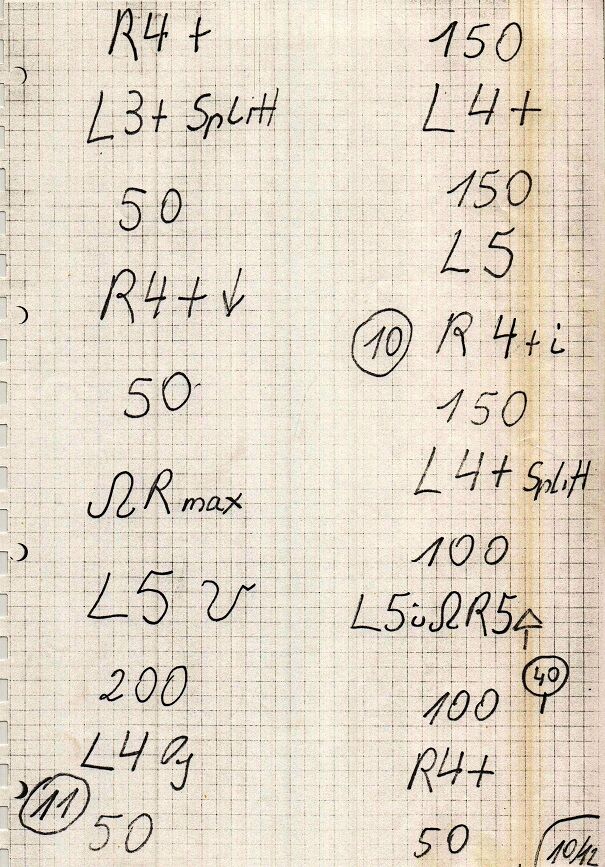 R4+
L3+ Split
50
R4+ ↓
50
ΩR max
L5
200
L4
11
50
150
L4+
150
L5
10 R 4+i
150
L4+ Split
100
L5 ü ΩR5
40
100
R4+
50
10/12